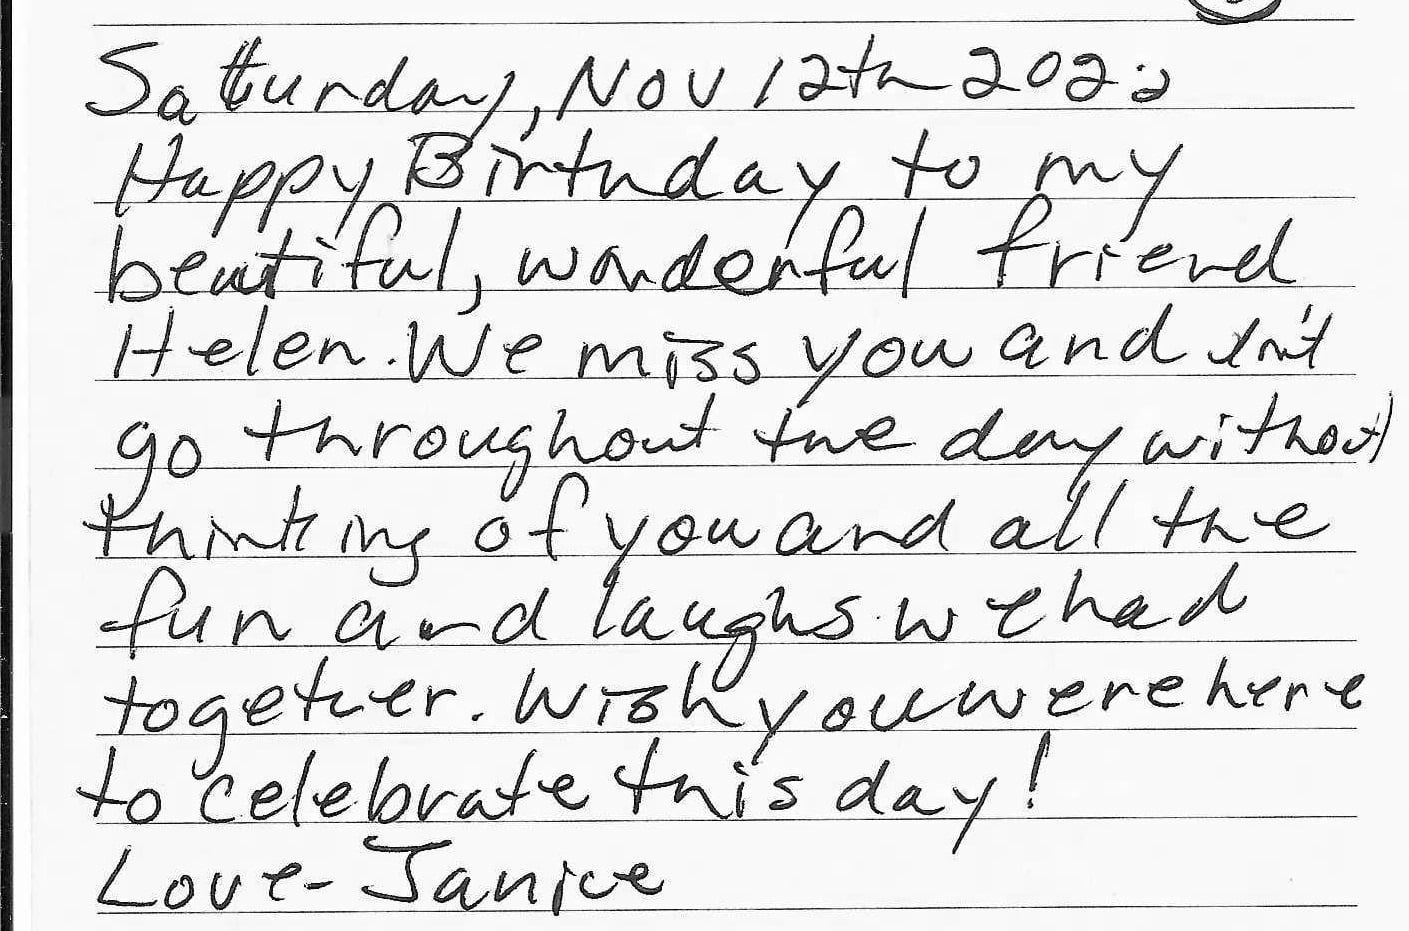 Saturday, Nov 12th 2022
Happy Birthday to my
beautiful, wonderful friend
Helen. We miss you and don't
go throughout the day without
thinking of you and all the
fun and laughs we had
together. Wish you were here
to celebrate this day!
Love - Janice